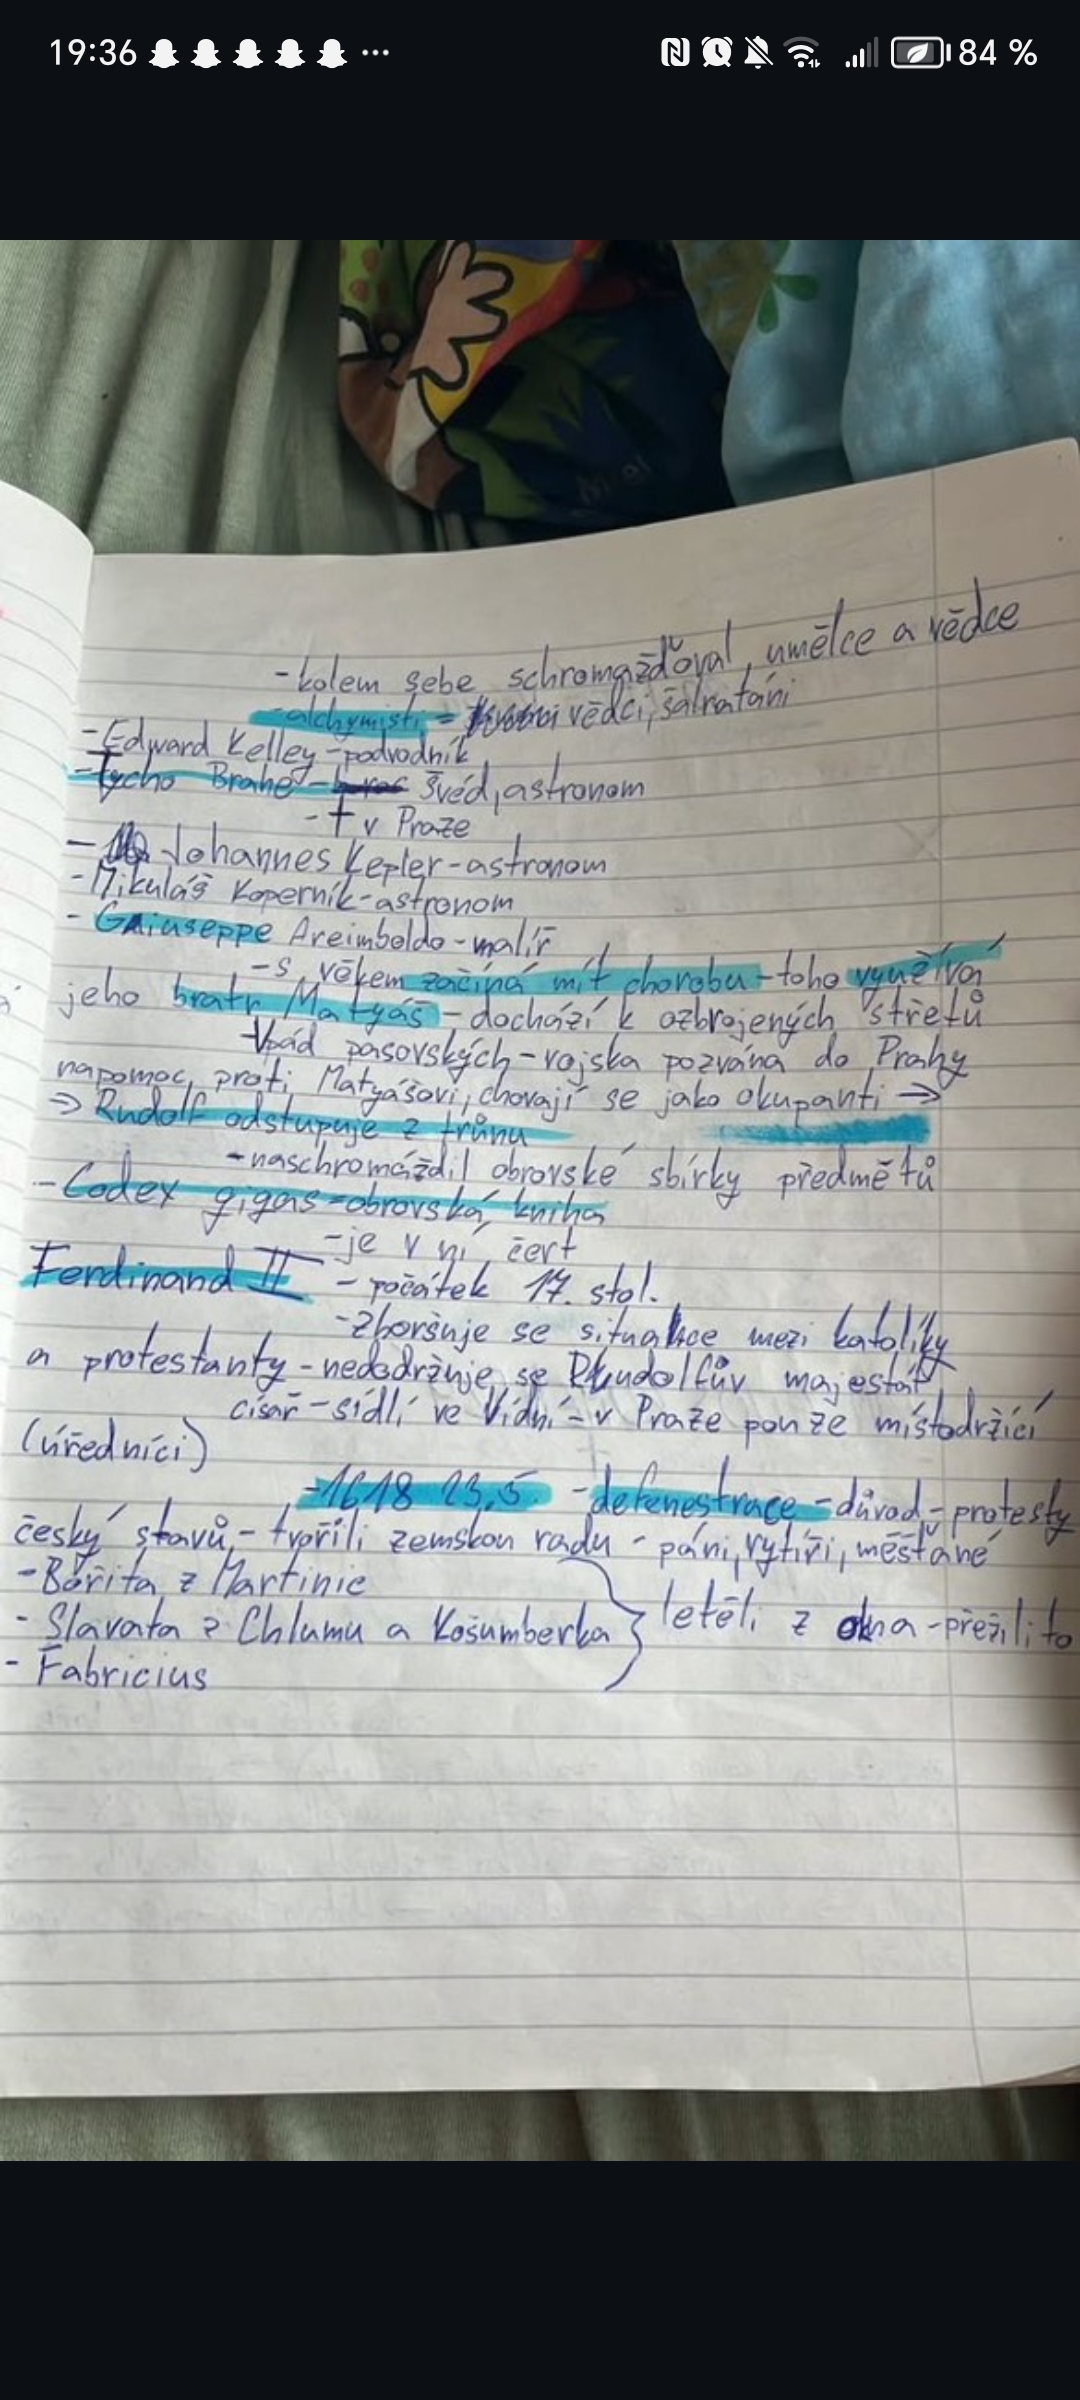 19:36 ... 84 %
-kolem sebe schromažďoval, umělce a vědce
-alchymisti = vědci, šalratáni
-Edward Kelley-podvodník
-tycho Brahe- švéd, astronom
-† v Praze
- Johannes Kepler-astronom
-Mikuláš Koperník-astronom
- Giuseppe Areimboldo-malíř
-s věkem začíná mít chorobu-toho využívá
jeho bratr Matyáš-dochází k ozbrojených střetů
Vpád pasovských-vojska pozvána do Prahy
napomoc proti Matyášovi, chovají se jako okupanti →
⇒ Rudolf odstupuje z trůnu
-naschromáždil obrovské sbírky předmětů
-Codex gigas=obrovská kniha
-je v ní čert
Ferdinand II - počátek 17. stol.
-zhoršuje se situace mezi katolíky
a protestanty-nedodržuje se Rudolfův majestát
císař-sídlí ve Vídni-v Praze pouze místodržící
(úředníci)
-1618 23.5. -defenestrace-důvod-protesty
český stavů-tvořili zemskou radu - páni, rytíři, měšťané
-Bořita z Martinic
- Slavata z Chlumu a Košumberka } letěli z okna-přežili to
- Fabricius